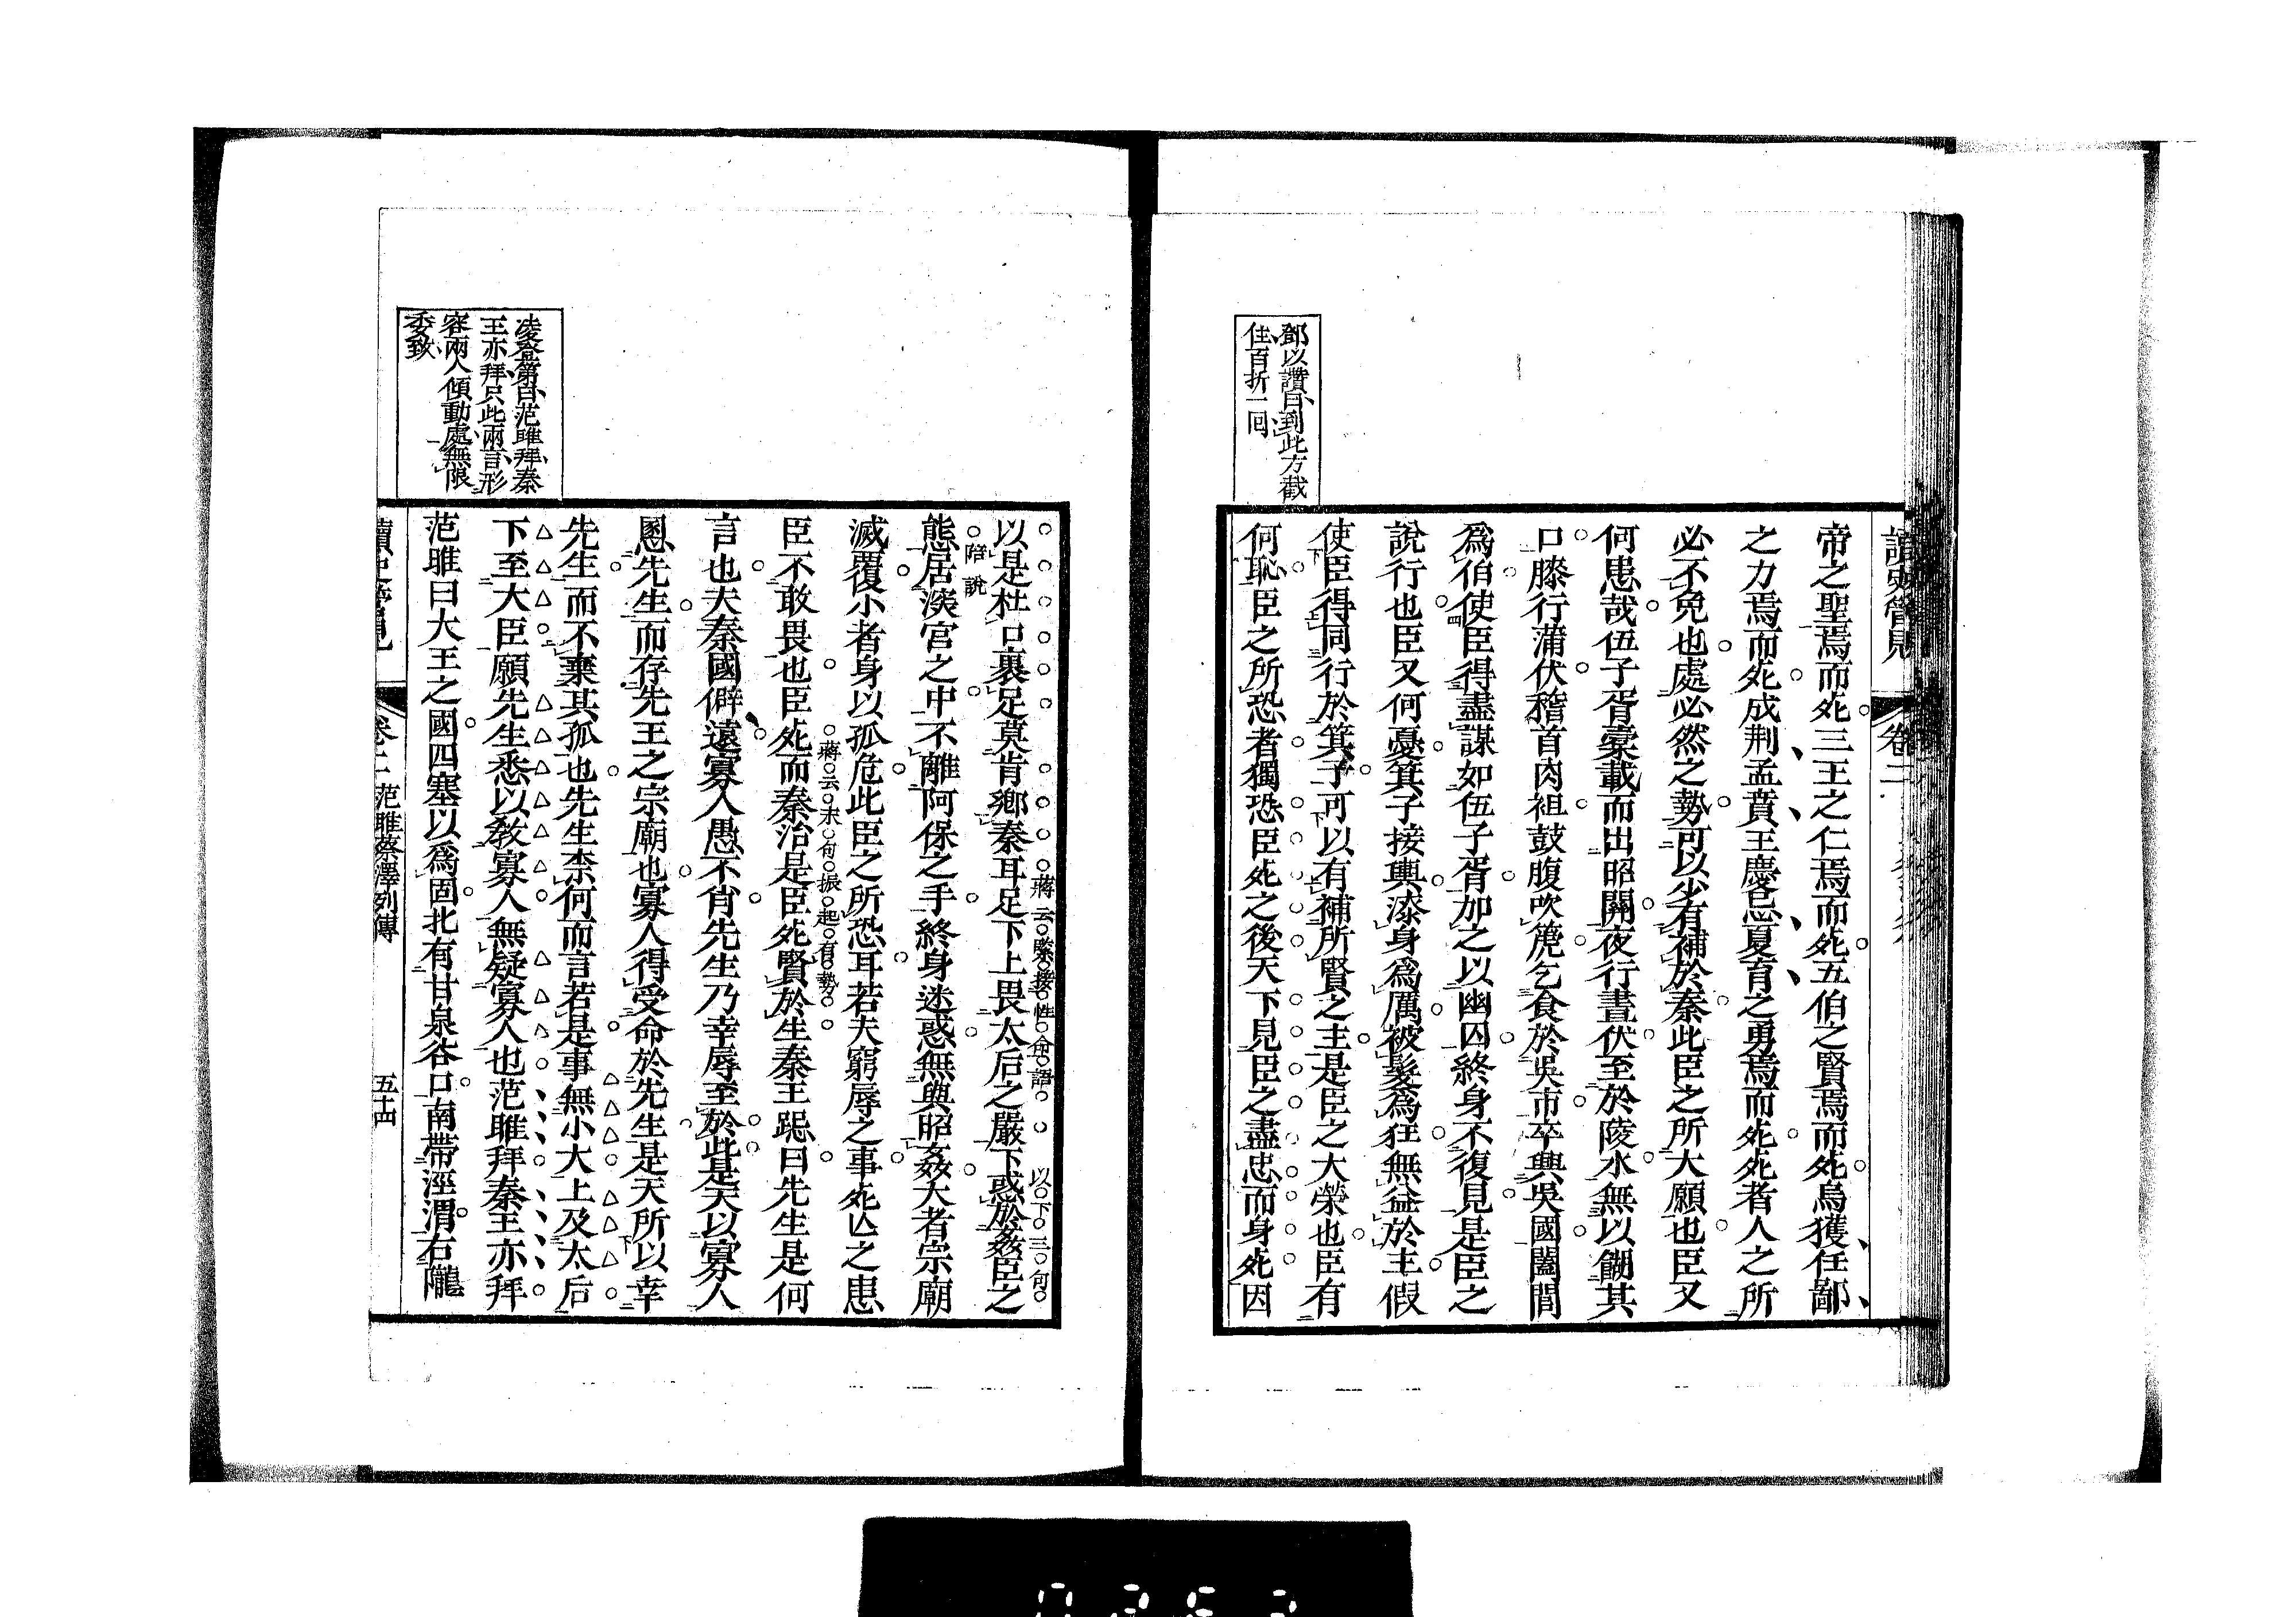 讀史管見
卷二
帝之聖焉而死三王之仁焉而死五伯之賢焉而死烏獲任鄙
之力焉而死成荆孟賁王慶忌夏育之勇焉而死死者人之所
必不免也處必然之勢可以少有補於秦此臣之所大願也臣又
何患哉伍子胥橐載而出昭關夜行晝伏至於陵水無以餬其
口膝行蒲伏稽首肉袒鼓腹吹篪乞食於吳市卒興吳國闔閭
爲伯使臣得盡謀如伍子胥加之以幽囚終身不復見是臣之
說行也臣又何憂箕子接輿漆身爲厲被髮爲狂無益於主假
使臣得同行於箕子可以有補所賢之主是臣之大榮也臣有
何恥臣之所恐者獨恐臣死之後天下見臣之盡忠而身死因
鄧以讚曰到此方截
住百折一回
蔣云緊接性命語
以下三句
以是杜口裹足莫肯鄉秦耳足下上畏太后之嚴下惑於姦臣之
陪說
態居深宮之中不離阿保之手終身迷惑無與昭姦大者宗廟
滅覆小者身以孤危此臣之所恐耳若夫窮辱之事死亾之患
蔣云末句振起有勢
臣不敢畏也臣死而秦治是臣死賢於生秦王跽曰先生是何
言也夫秦國僻遠寡人愚不肖先生乃幸辱至於此是天以寡人
慁先生而存先王之宗廟也寡人得受命於先生是天所以幸
先生而不棄其孤也先生柰何而言若是事無小大上及太后
下至大臣願先生悉以教寡人無疑寡人也范雎拜秦王亦拜
范雎曰大王之國四塞以爲固北有甘泉谷口南帶涇渭右隴
凌登第曰范雎拜秦
王亦拜只此兩言形
容兩人傾動處無限
委致
讀史管見
卷二
范雎蔡澤列傳
五十四